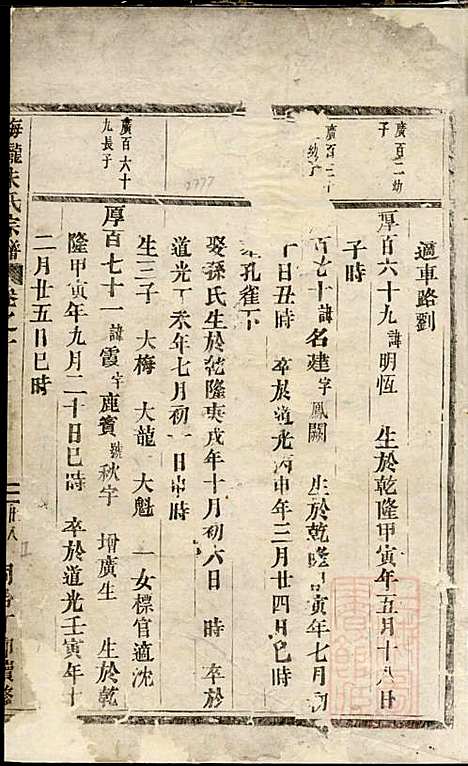 適車路劉
廣百二幼子
厚百六十九諱明恆 生於乾隆甲寅年五月十八日
子時
百七十諱名建字鳳闕 生於乾隆甲寅年七月初
十日丑時 卒於道光丙申年三月廿四日巳時
孔雀下
娶孫氏生於乾隆庚戌年十月初六日 時 卒於
道光丁未年七月初一日申時
生三子 大梅 大龍 大魁 一女標官適沈
廣百六十九長子
厚百七十一諱霞字鹿賓號秋宇 增廣生 生於乾
隆甲寅年九月二十日巳時 卒於道光壬寅年十
二月廿五日巳時
梅隴朱氏宗譜
2777